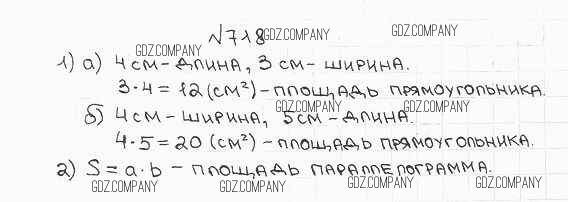 №718 GDZ.COMPANY GDZ.COMPANY
GDZ.COMPANY
1) а) 4 см – длина, 3 см – ширина.
3·4 = 12 (см²) – площадь прямоугольника.
GDZ.COMPANY GDZ.COMPANY
б) 4 см – ширина, 5 см – длина.
4·5 = 20 (см²) – площадь прямоугольника.
2) S = a·b – площадь параллелограмма.
GDZ.COMPANY GDZ.COMPANY GDZ.COMPANY GDZ.COMPANY